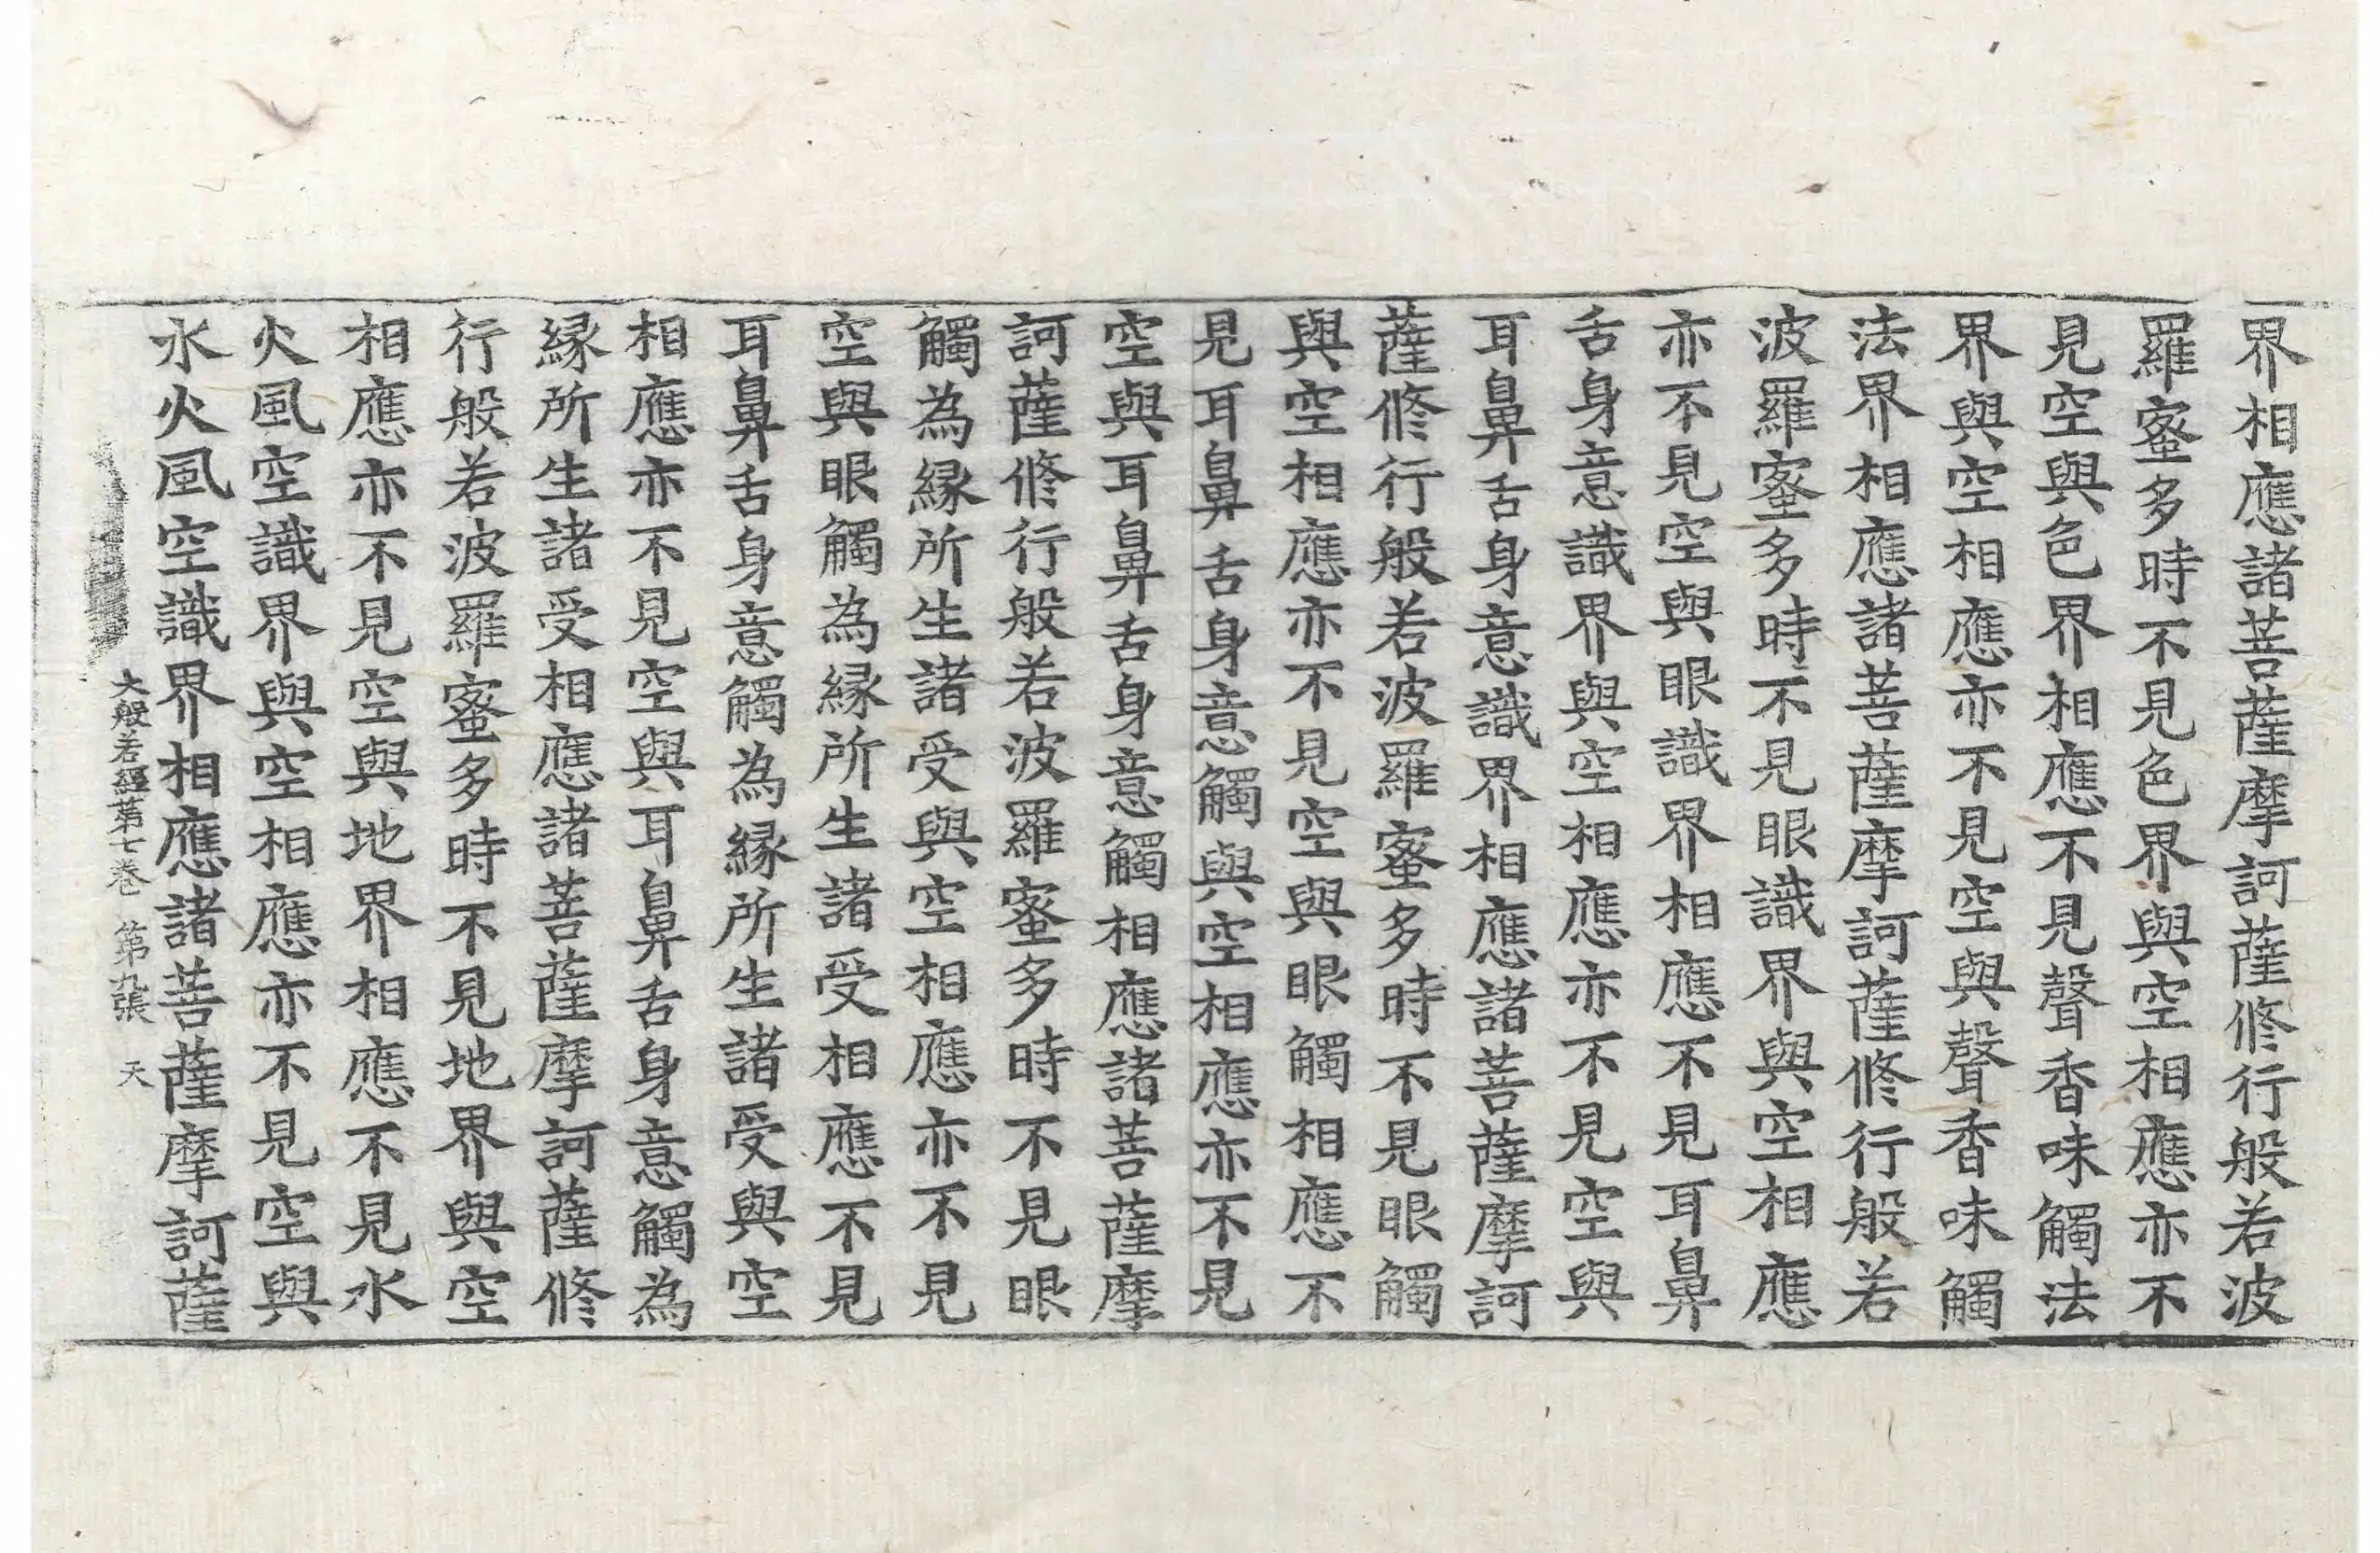 界相應諸菩薩摩訶薩修行般若波
羅蜜多時不見色界與空相應亦不
見空與色界相應不見聲香味觸法
界與空相應亦不見空與聲香味觸
法界相應諸菩薩摩訶薩修行般若
波羅蜜多時不見眼識界與空相應
亦不見空與眼識界相應不見耳鼻
舌身意識界與空相應亦不見空與
耳鼻舌身意識界相應諸菩薩摩訶
薩修行般若波羅蜜多時不見眼觸
與空相應亦不見空與眼觸相應不
見耳鼻舌身意觸與空相應亦不見
空與耳鼻舌身意觸相應諸菩薩摩
訶薩修行般若波羅蜜多時不見眼
觸為緣所生諸受與空相應亦不見
空與眼觸為緣所生諸受相應不見
耳鼻舌身意觸為緣所生諸受與空
相應亦不見空與耳鼻舌身意觸為
緣所生諸受相應諸菩薩摩訶薩修
行般若波羅蜜多時不見地界與空
相應亦不見空與地界相應不見水
火風空識界與空相應亦不見空與
水火風空識界相應諸菩薩摩訶薩
大般若經第七卷 第九張 天